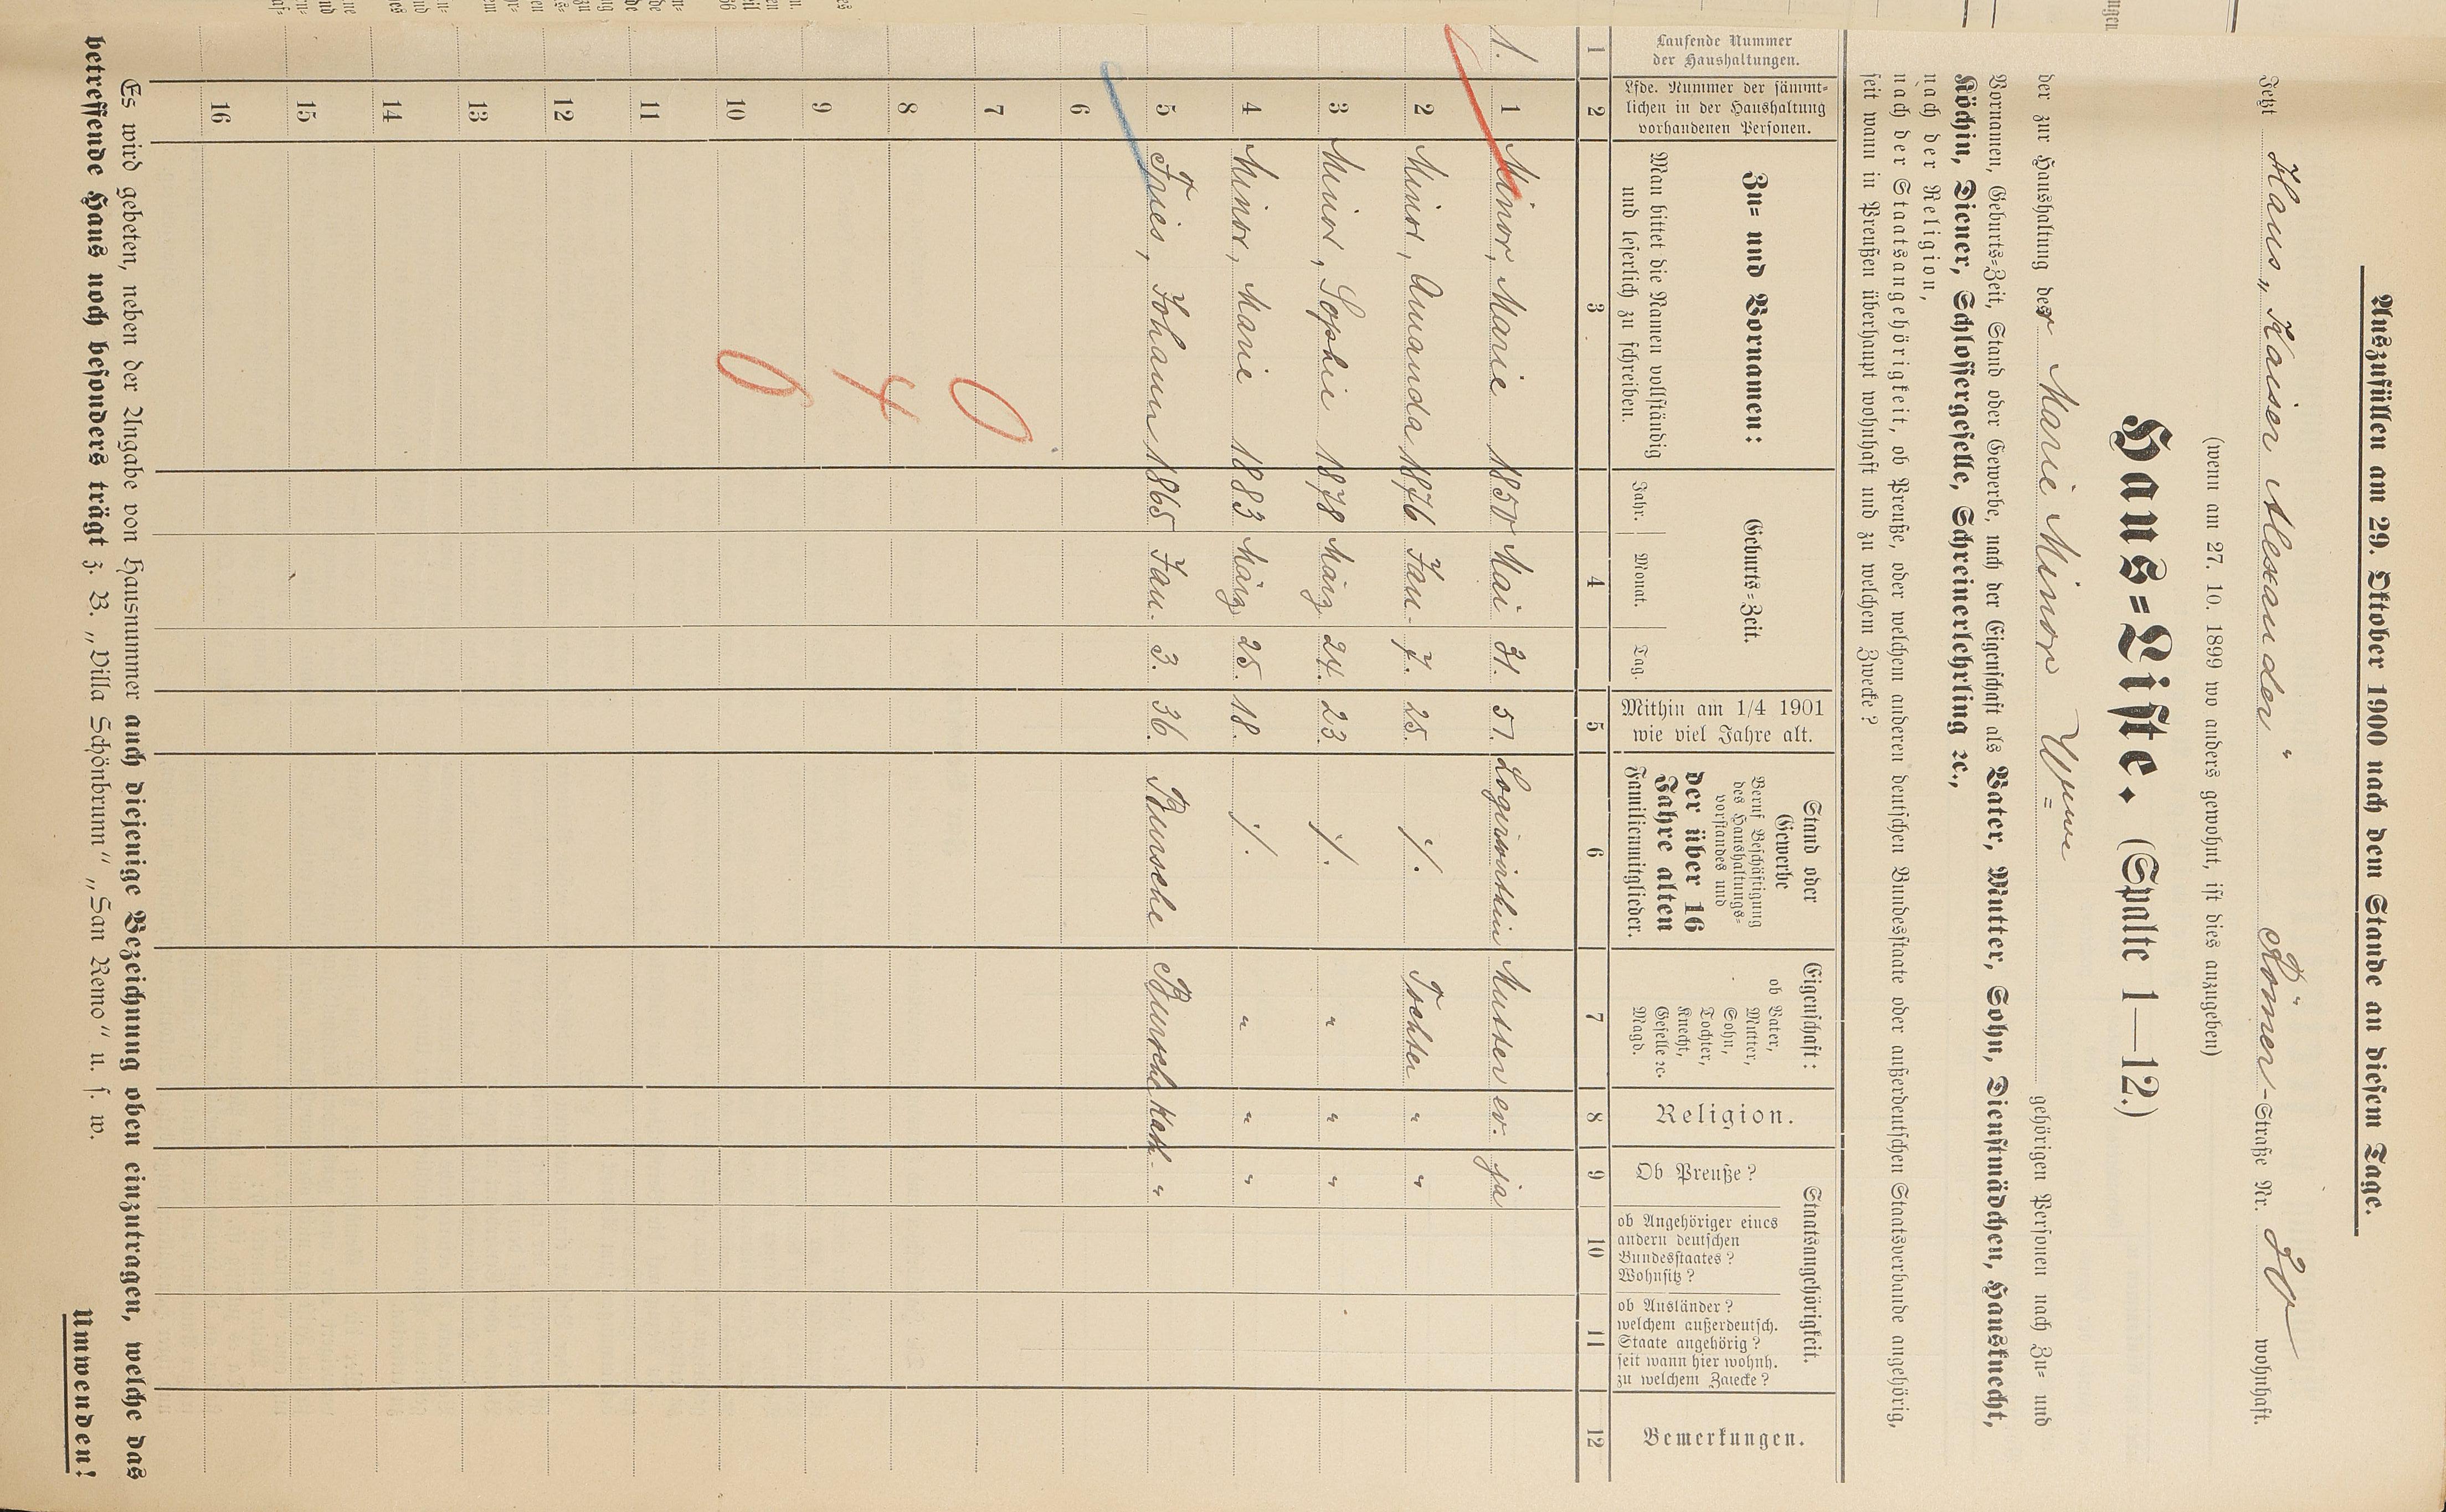 Auszufüllen am 29. Oktober 1900 nach dem Stande an diesem Tage.
Jetzt Haus „Kaiser Alexander“ Römer-Straße Nr. wohnhaft.
(wenn am 27. 10. 1899 wo anders gewohnt, ist dies anzugeben)
Haus=Liste. (Spalte 1—12.)
der zur Haushaltung der Marie Minor Wwe gehörigen Personen nach Zu= und
Vornamen, Geburts=Zeit, Stand oder Gewerbe, nach der Eigenschaft als Vater, Mutter, Sohn, Dienstmädchen, Hausknecht,
Köchin, Diener, Schlossergeselle, Schreinerlehrling ꝛc.,
nach der Religion,
nach der Staatsangehörigkeit, ob Preuße, oder welchem anderen deutschen Bundesstaate oder außerdeutschen Staatsverbande angehörig,
seit wann in Preußen überhaupt wohnhaft und zu welchem Zwecke?
Laufende Nummer
der Haushaltungen.
Lfde. Nummer der sämmt=
lichen in der Haushaltung
vorhandenen Personen.
Zu= und Vornamen:
Man bittet die Namen vollständig
und leserlich zu schreiben.
Geburts=Zeit.
Jahr. Monat. Tag.
Mithin am 1/4 1901
wie viel Jahre alt.
Stand oder
Gewerbe
Beruf Beschäftigung
des Haushaltungs=
vorstandes und
der über 16
Jahre alten
Familienmitglieder.
Eigenschaft:
ob Vater,
Mutter,
Sohn,
Tochter,
Knecht,
Geselle ꝛc.
Magd.
Religion.
Staatsangehörigkeit.
Ob Preuße?
ob Angehöriger eines
andern deutschen
Bundesstaates?
Wohnsitz?
ob Ausländer?
welchem außerdeutsch.
Staate angehörig?
seit wann hier wohnh.
zu welchem Zwecke?
Bemerkungen.
1 2 3 4 5 6 7 8 9 10 11 12
1. 1 Minor, Marie 1850 Mai 31. 51. Logirwirthin Mutter ev. ja
2 Minor, Amanda 1876 Jan. 7. 25. ./. Tochter " "
3 Minor, Sophie 1878 März 24. 23. ./. " " "
4 Minor, Marie 1883 März 25. 18. ./. " " "
5 Fries, Johann 1865 Jan. 3. 36. Bursche Bursche kath. "
6
7 0
8
9 4
10 0
11
12
13
14
15
16
Es wird gebeten, neben der Angabe von Hausnummer auch diejenige Bezeichnung oben einzutragen, welche das
betreffende Haus noch besonders trägt z. B. „Villa Schönbrunn“ „San Remo“ u. s. w.
Umwenden!